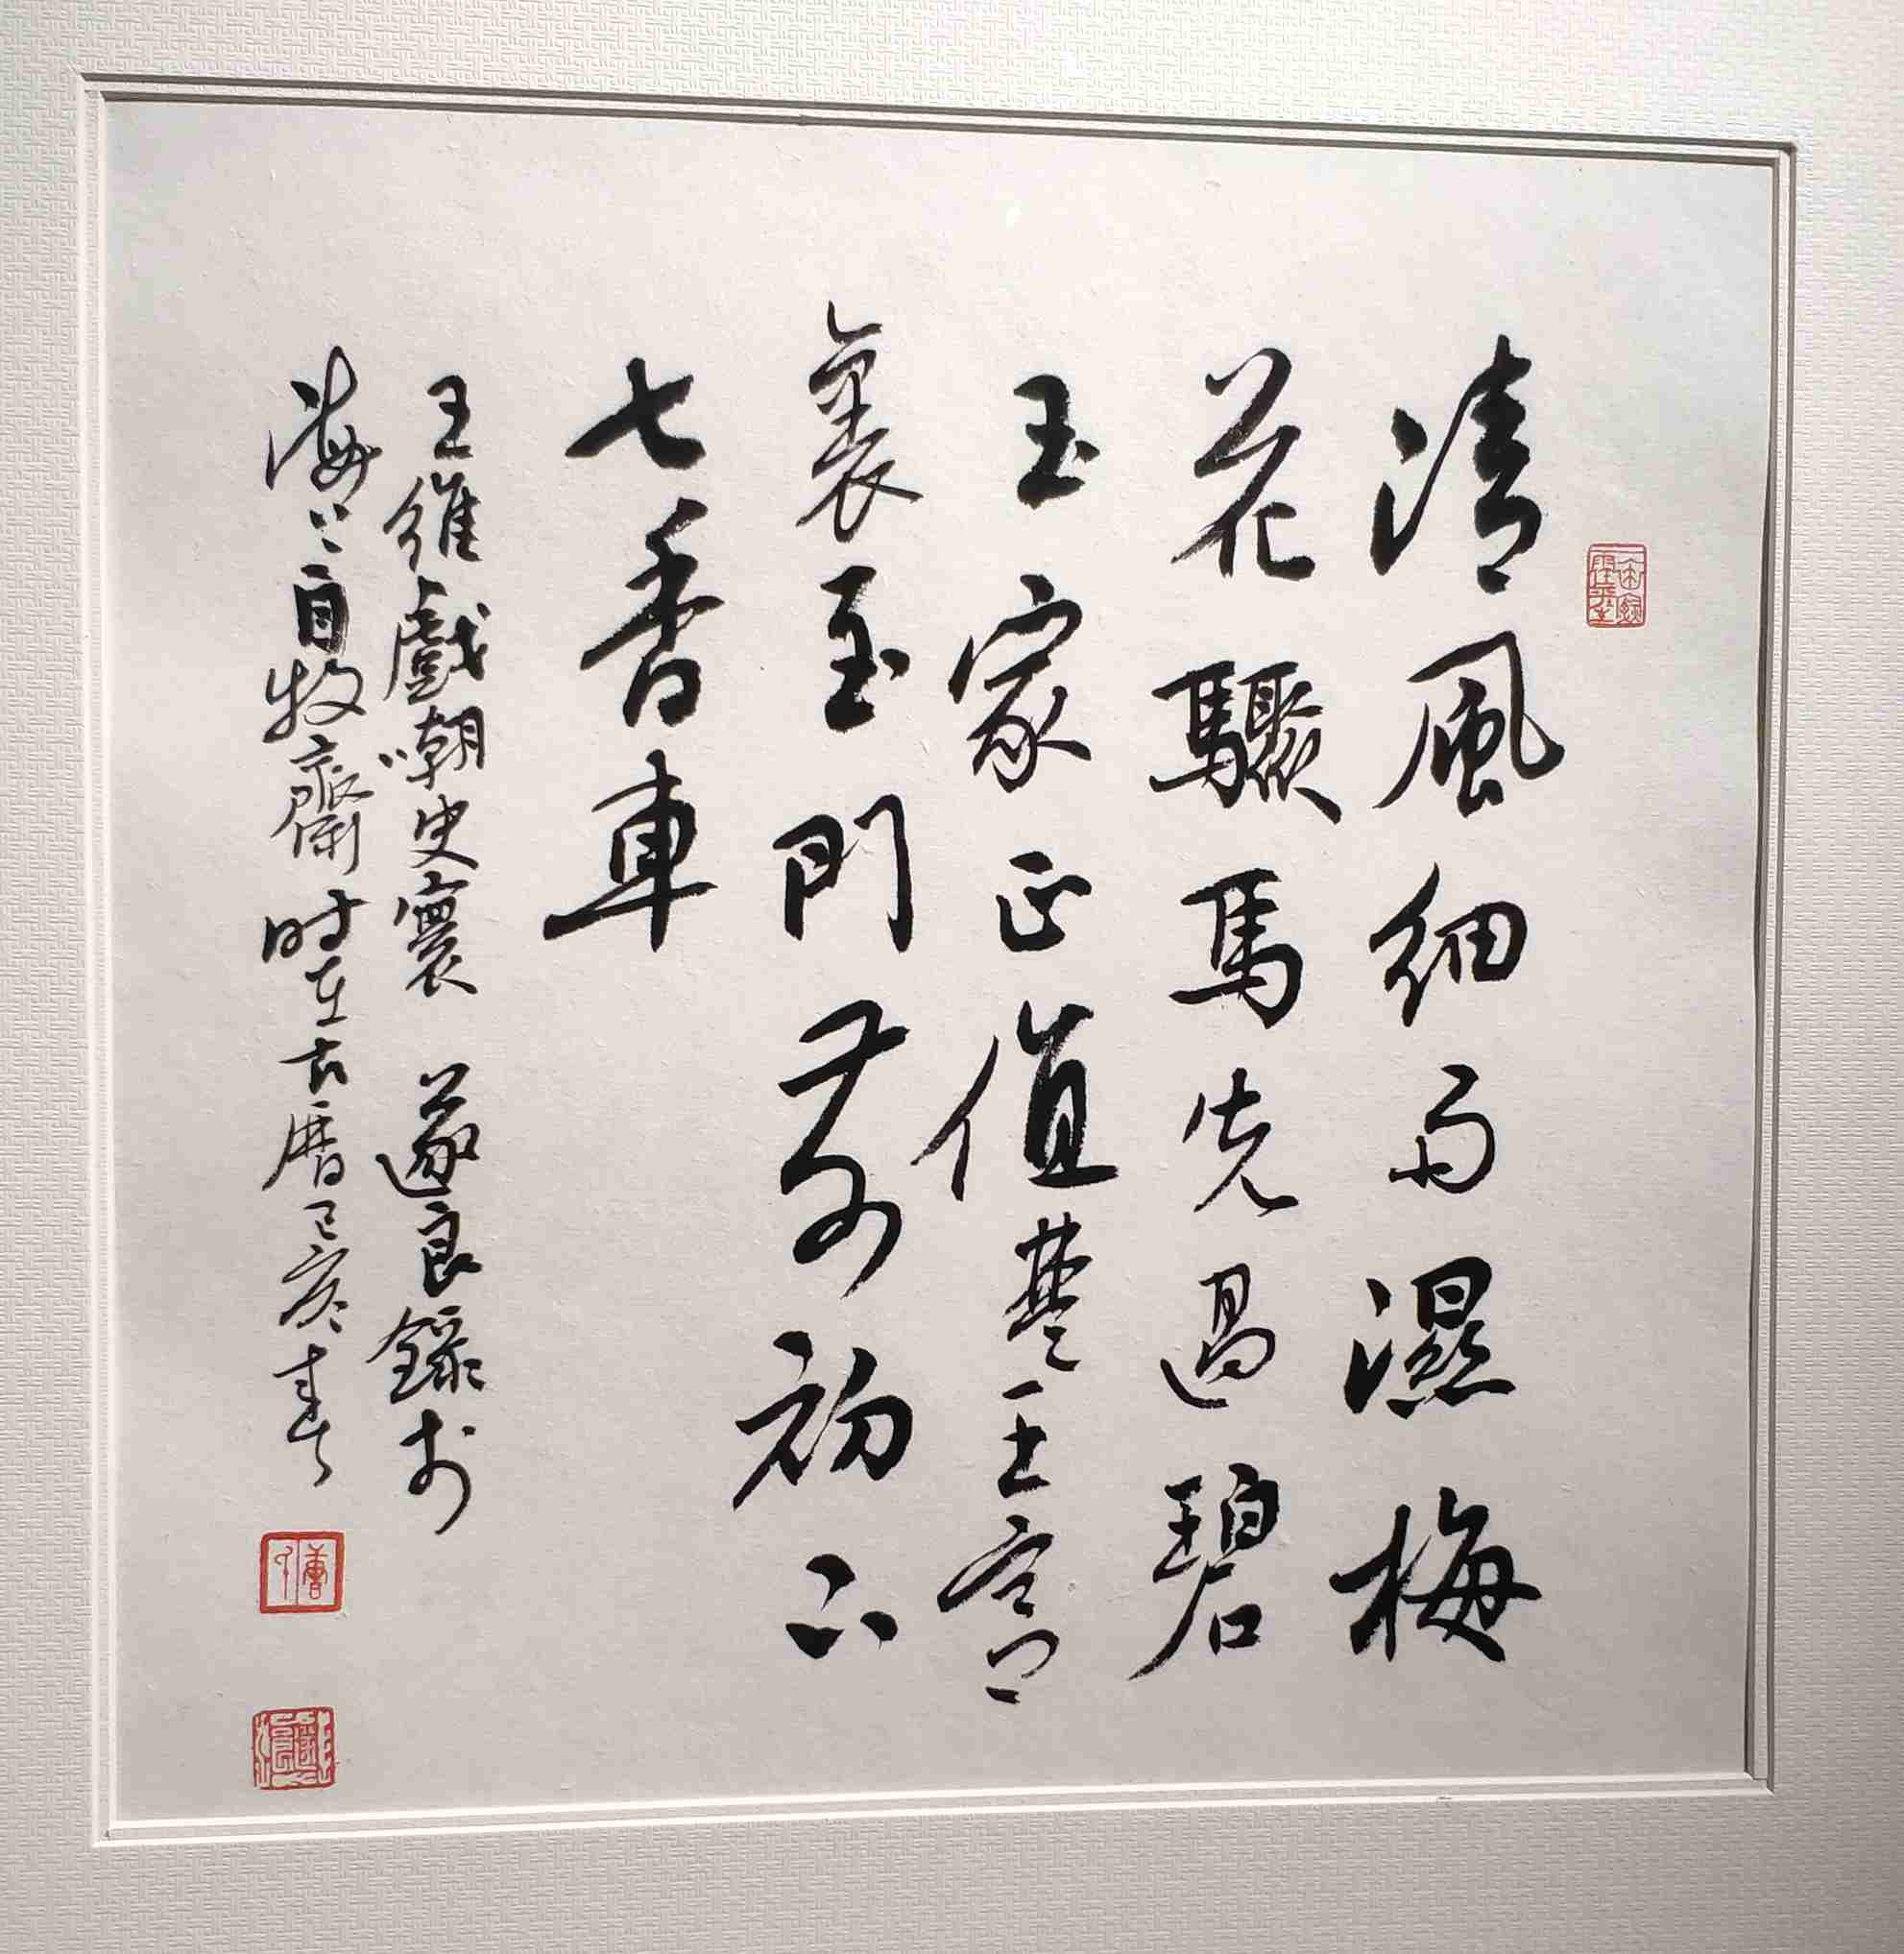 清風細雨濕梅
花驟馬先過碧
玉家正值楚王宮
裏至門前初下
七香車
王維戲嘲史寰 遂良錄於
海上自牧齋時在古曆己亥春